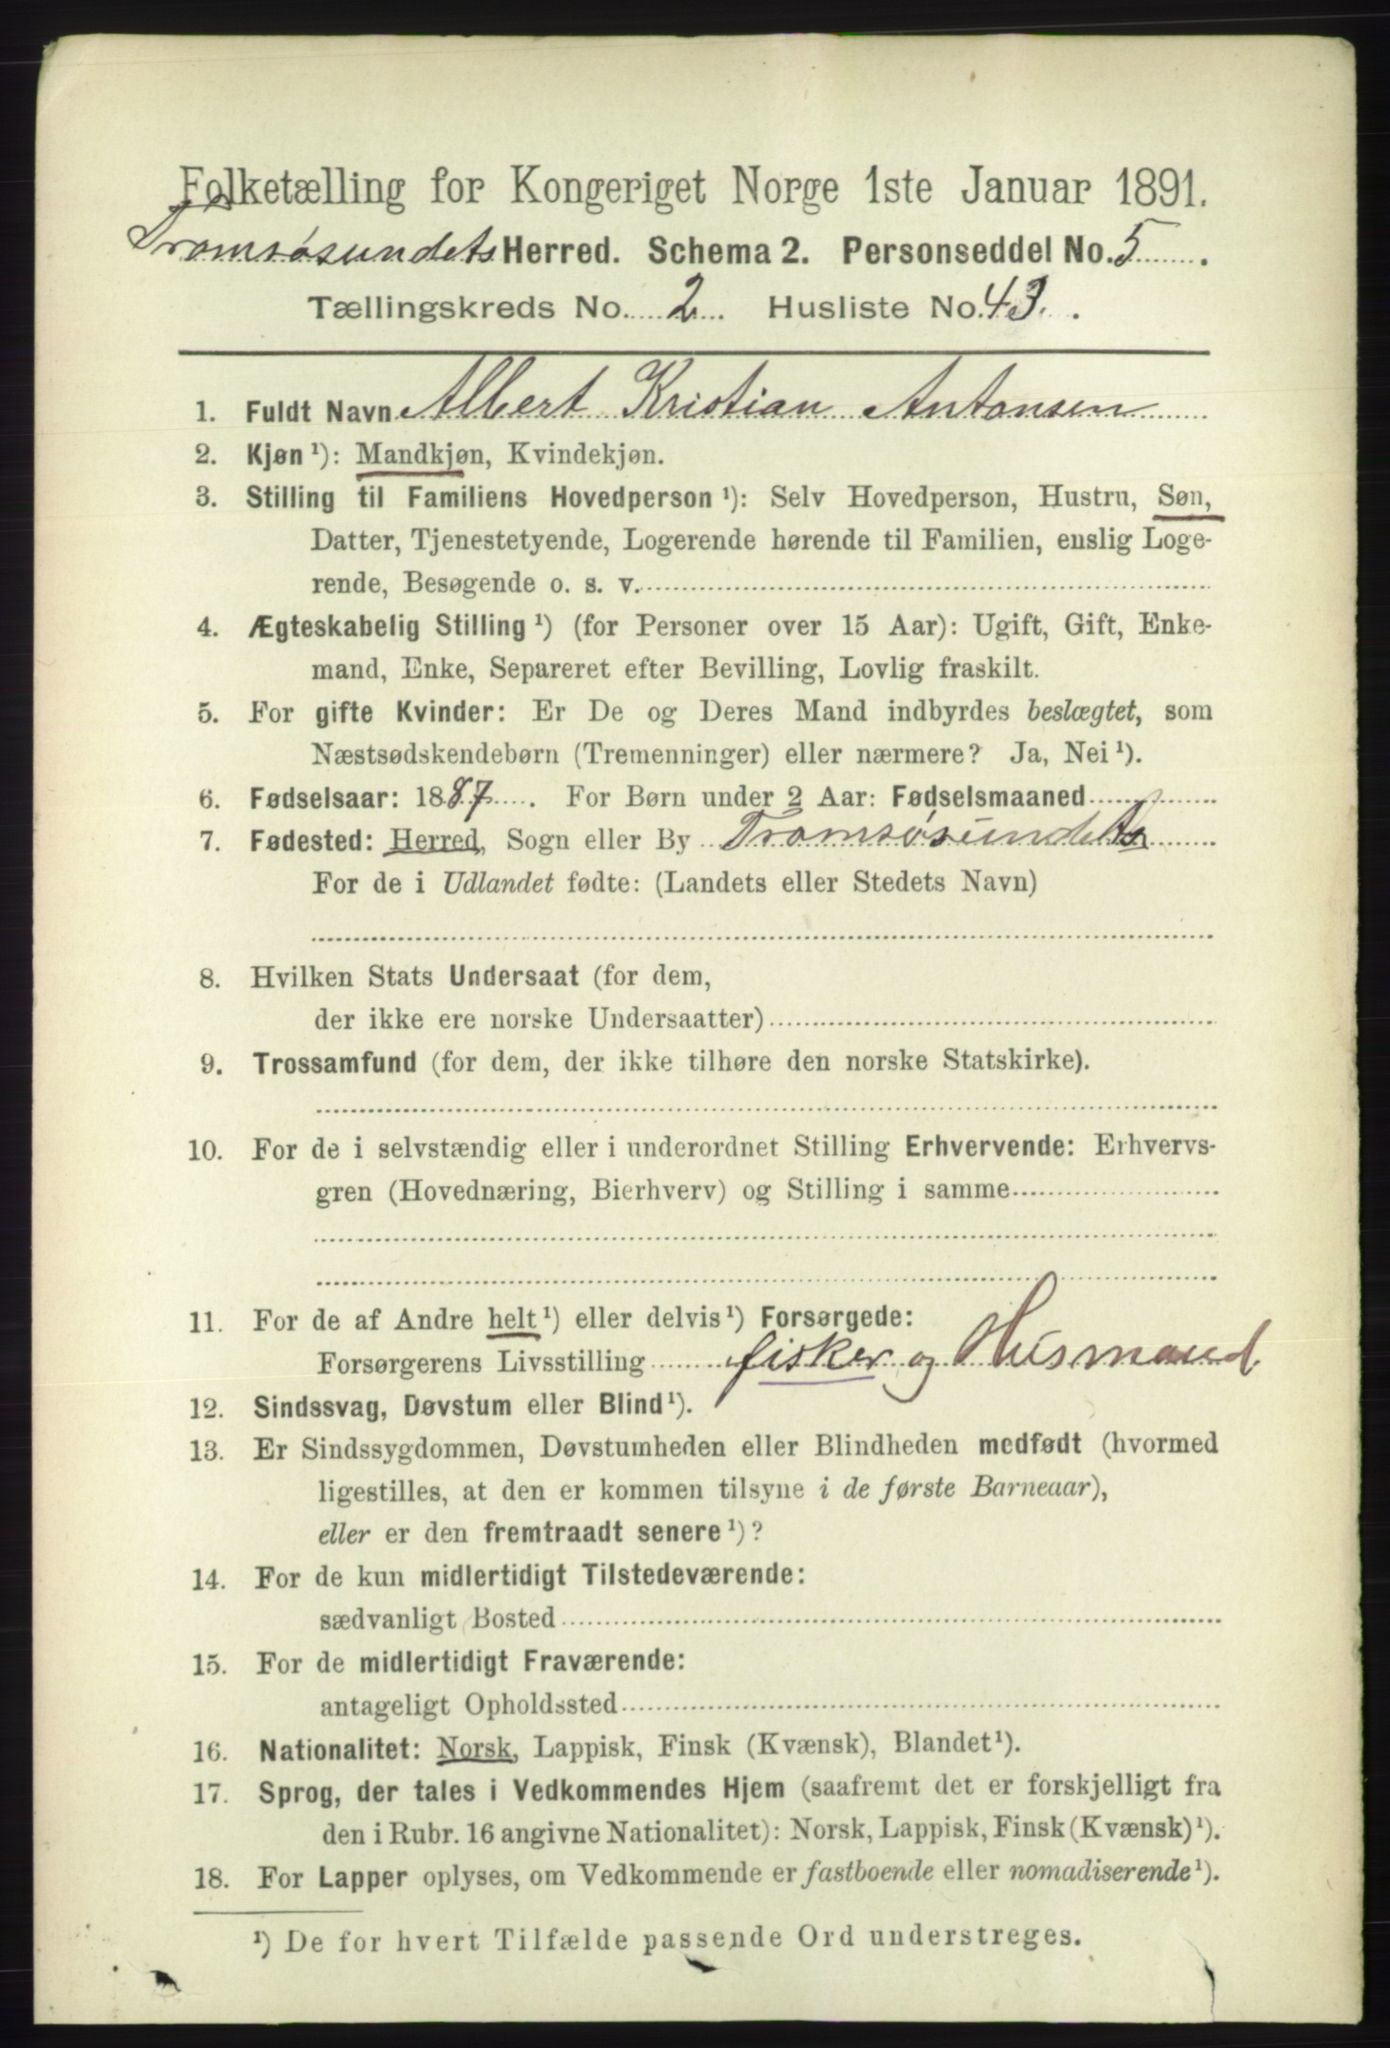 Folketælling for Kongeriget Norge 1ste Januar 1891.
Tromsøsundets Herred. Schema 2. Personseddel No. 5.
Tællingskreds No. 2. Husliste No. 43.
1. Fuldt Navn Albert Kristian Antonsen
2. Kjøn ¹): Mandkjøn, Kvindekjøn.
3. Stilling til Familiens Hovedperson ¹): Selv Hovedperson, Hustru, Søn,
Datter, Tjenestetyende, Logerende hørende til Familien, enslig Loge-
rende, Besøgende o. s. v.
4. Ægteskabelig Stilling ¹) (for Personer over 15 Aar): Ugift, Gift, Enke-
mand, Enke, Separeret efter Bevilling, Lovlig fraskilt.
5. For gifte Kvinder: Er De og Deres Mand indbyrdes beslægtet, som
Næstsødskendebørn (Tremenninger) eller nærmere? Ja, Nei ¹).
6. Fødselsaar: 1887. For Børn under 2 Aar: Fødselsmaaned
7. Fødested: Herred, Sogn eller By Tromsøsundets
For de i Udlandet fødte: (Landets eller Stedets Navn)
8. Hvilken Stats Undersaat (for dem,
der ikke ere norske Undersaatter)
9. Trossamfund (for dem, der ikke tilhøre den norske Statskirke).
10. For de i selvstændig eller i underordnet Stilling Erhvervende: Erhvervs-
gren (Hovednæring, Bierhverv) og Stilling i samme
11. For de af Andre helt ¹) eller delvis ¹) Forsørgede:
Forsørgerens Livsstilling fisker og Husmand
12. Sindssvag, Døvstum eller Blind ¹).
13. Er Sindssygdommen, Døvstumheden eller Blindheden medfødt (hvormed
ligestilles, at den er kommen tilsyne i de første Barneaar),
eller er den fremtraadt senere ¹)?
14. For de kun midlertidigt Tilstedeværende:
sædvanligt Bosted
15. For de midlertidigt Fraværende:
antageligt Opholdssted
16. Nationalitet: Norsk, Lappisk, Finsk (Kvænsk), Blandet ¹).
17. Sprog, der tales i Vedkommendes Hjem (saafremt det er forskjelligt fra
den i Rubr. 16 angivne Nationalitet): Norsk, Lappisk, Finsk (Kvænsk) ¹).
18. For Lapper oplyses, om Vedkommende er fastboende eller nomadiserende ¹).
¹) De for hvert Tilfælde passende Ord understreges.